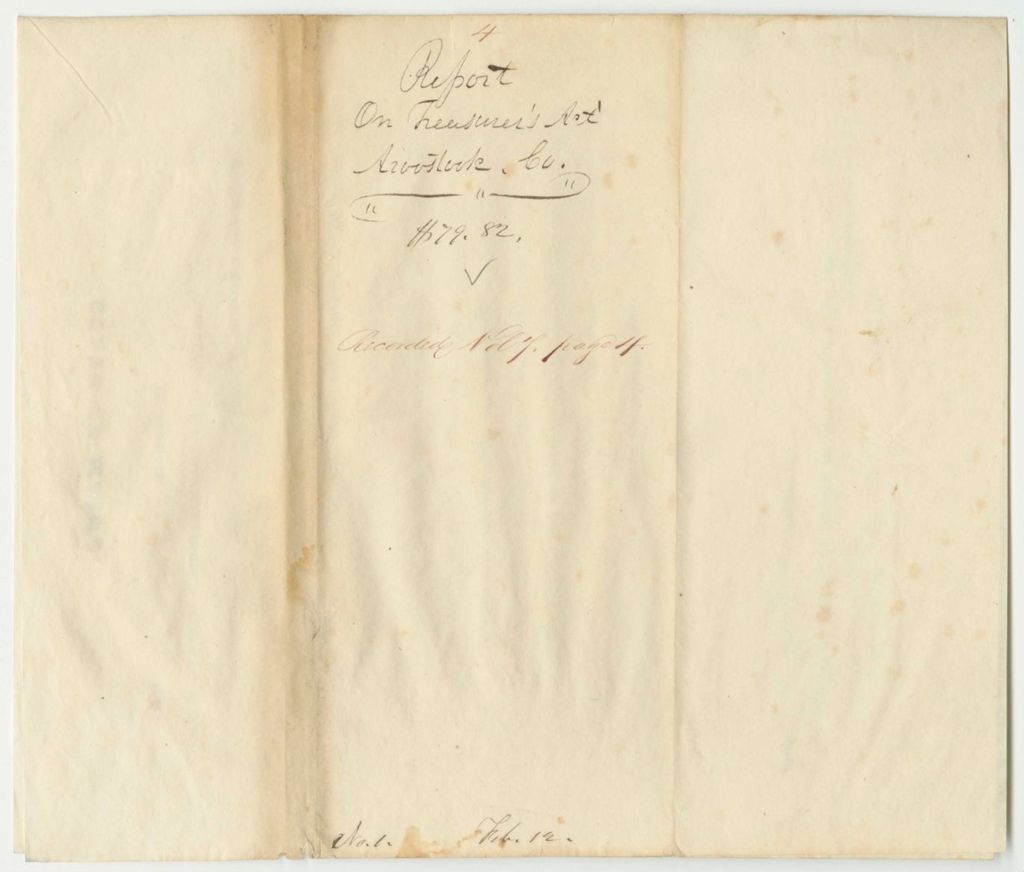 4
Report
On Treasurer's Act
Aroostook. Co.
$79.82.
Recorded Vol 7. page 4.
No. 1. Feb. 12.